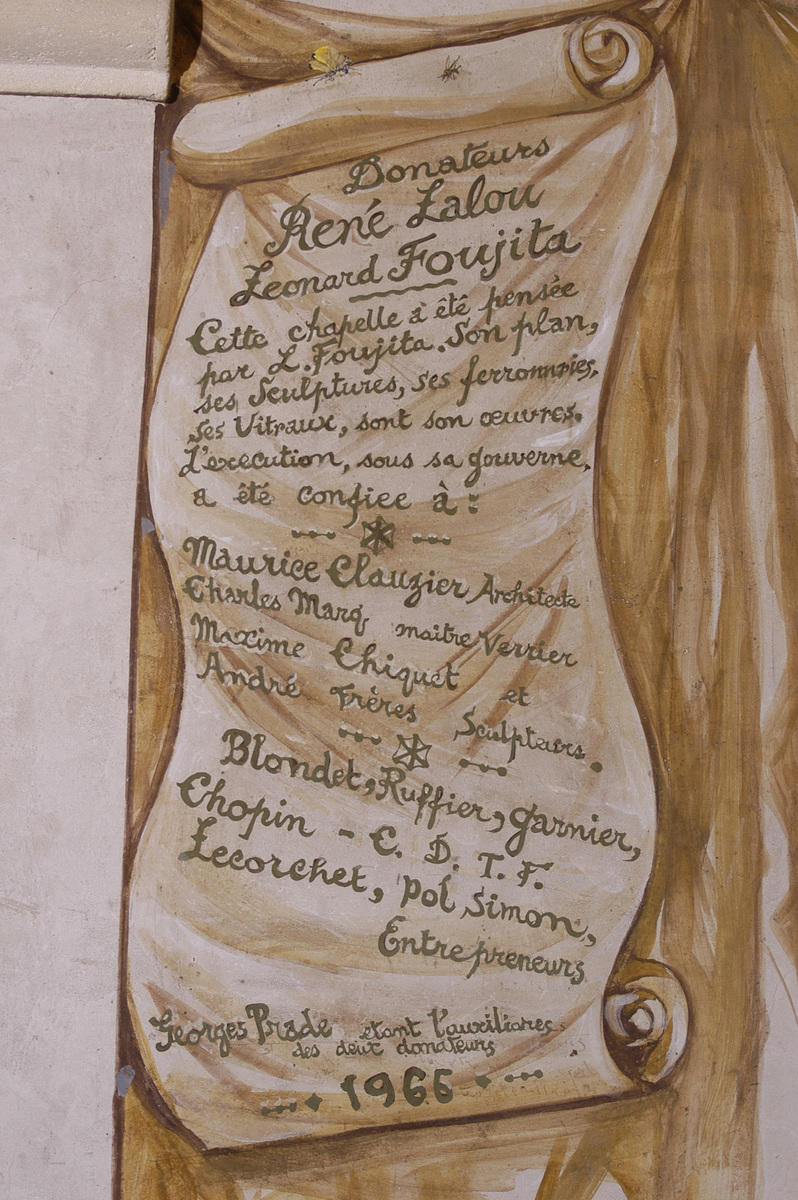 Donateurs
René Lalou
Leonard Foujita
Cette chapelle a été pensée
par L. Foujita. Son plan,
ses Sculptures, ses ferronneries,
ses Vitraux, sont son œuvres.
L'execution, sous sa gouverne,
a été confiee à :
Maurice Clauzier Architecte
Charles Marq maitre Verrier
Maxime Chiquet et
André Frères Sculpteurs.
Blondet, Ruffier, Garnier,
Chopin - C. D. T. F.
Lecorchet, Pol Simon,
Entrepreneurs
Georges Prade etant l'auxiliaires
des deux donateurs
1966